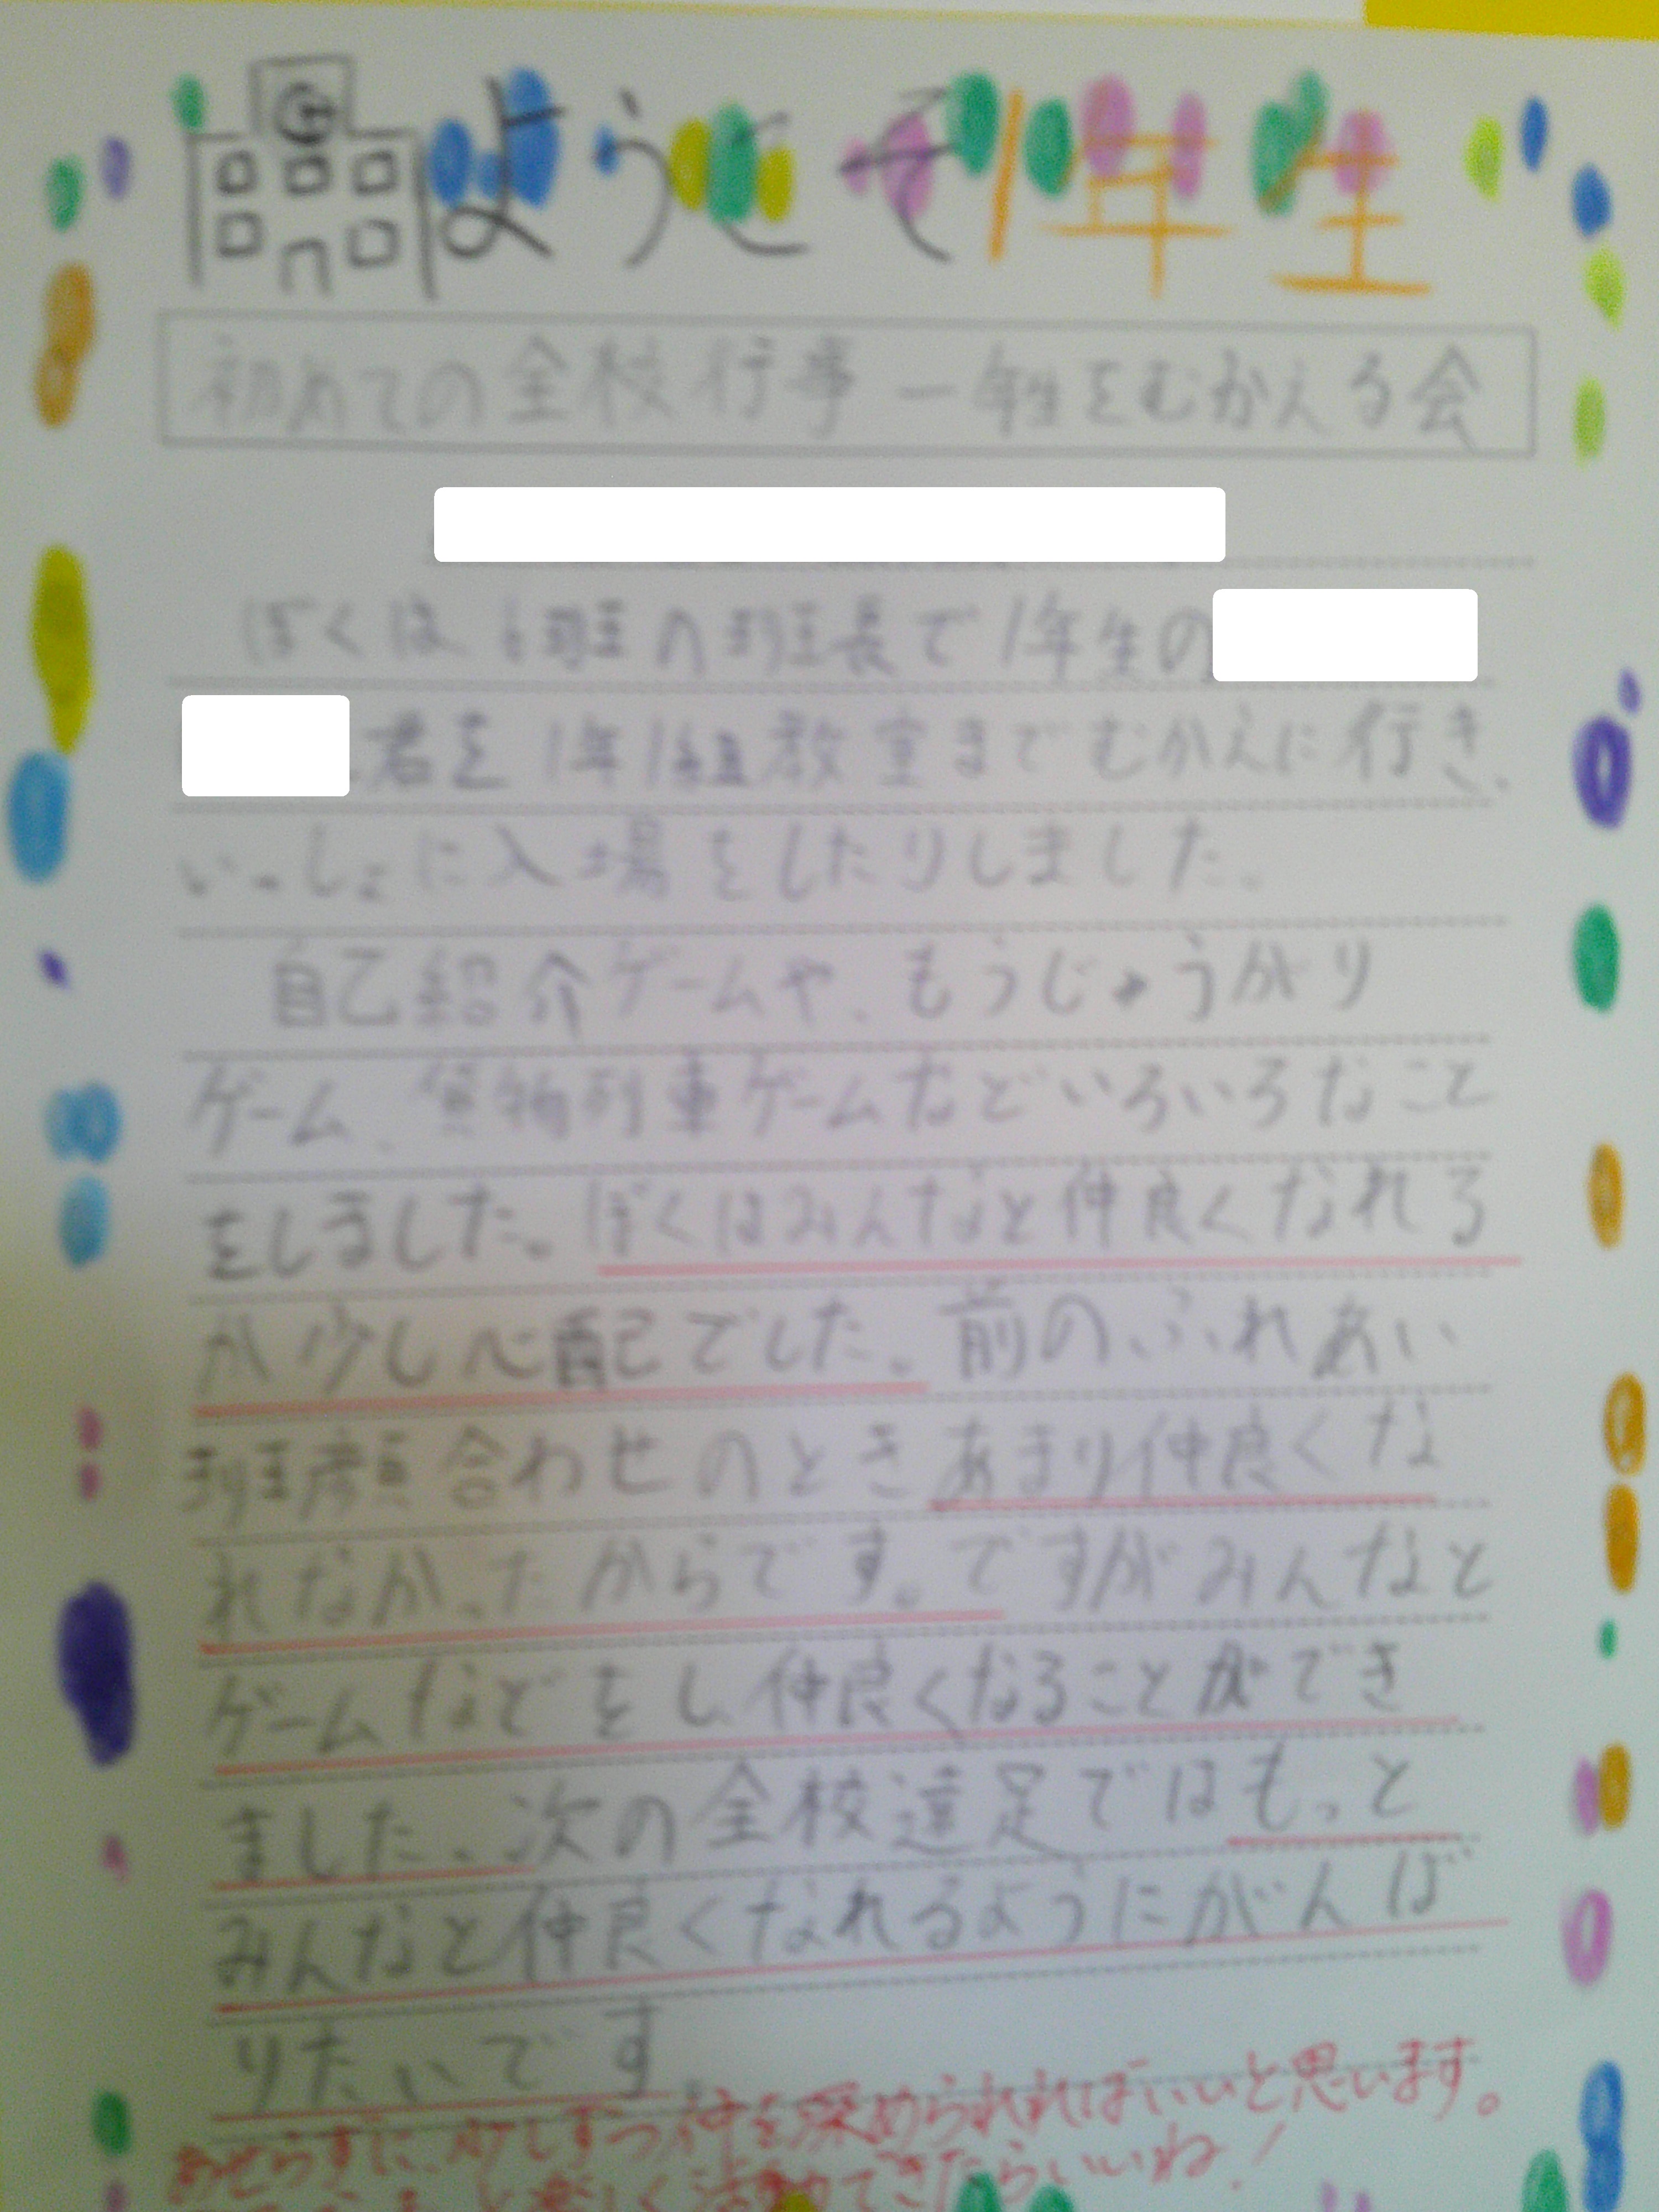 ようこそ1年生
初めての全校行事 一年生をむかえる会
ぼくは 班の班長で1年生の
君を1年1組教室までむかえに行き、
いっしょに入場をしたりしました。
自己紹介ゲームや、もうじゅうがり
ゲーム、貨物列車ゲームなどいろいろなこと
をしました。ぼくはみんなと仲良くなれる
か少し心配でした。前のふれあい
班顔合わせのときあまり仲良くな
れなかったからです。ですがみんなと
ゲームなどをし仲良くなることができ
ました。次の全校遠足ではもっと
みんなと仲良くなれるようにがんば
りたいです
あせらずに、少しずつ仲を深められればいいと思います。
と楽しく活動できたらいいね!